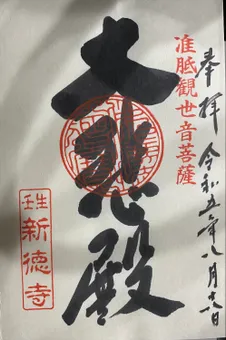 奉拝 令和五年八月十六日
准胝観世音菩薩
大悲殿
壬生
新徳寺